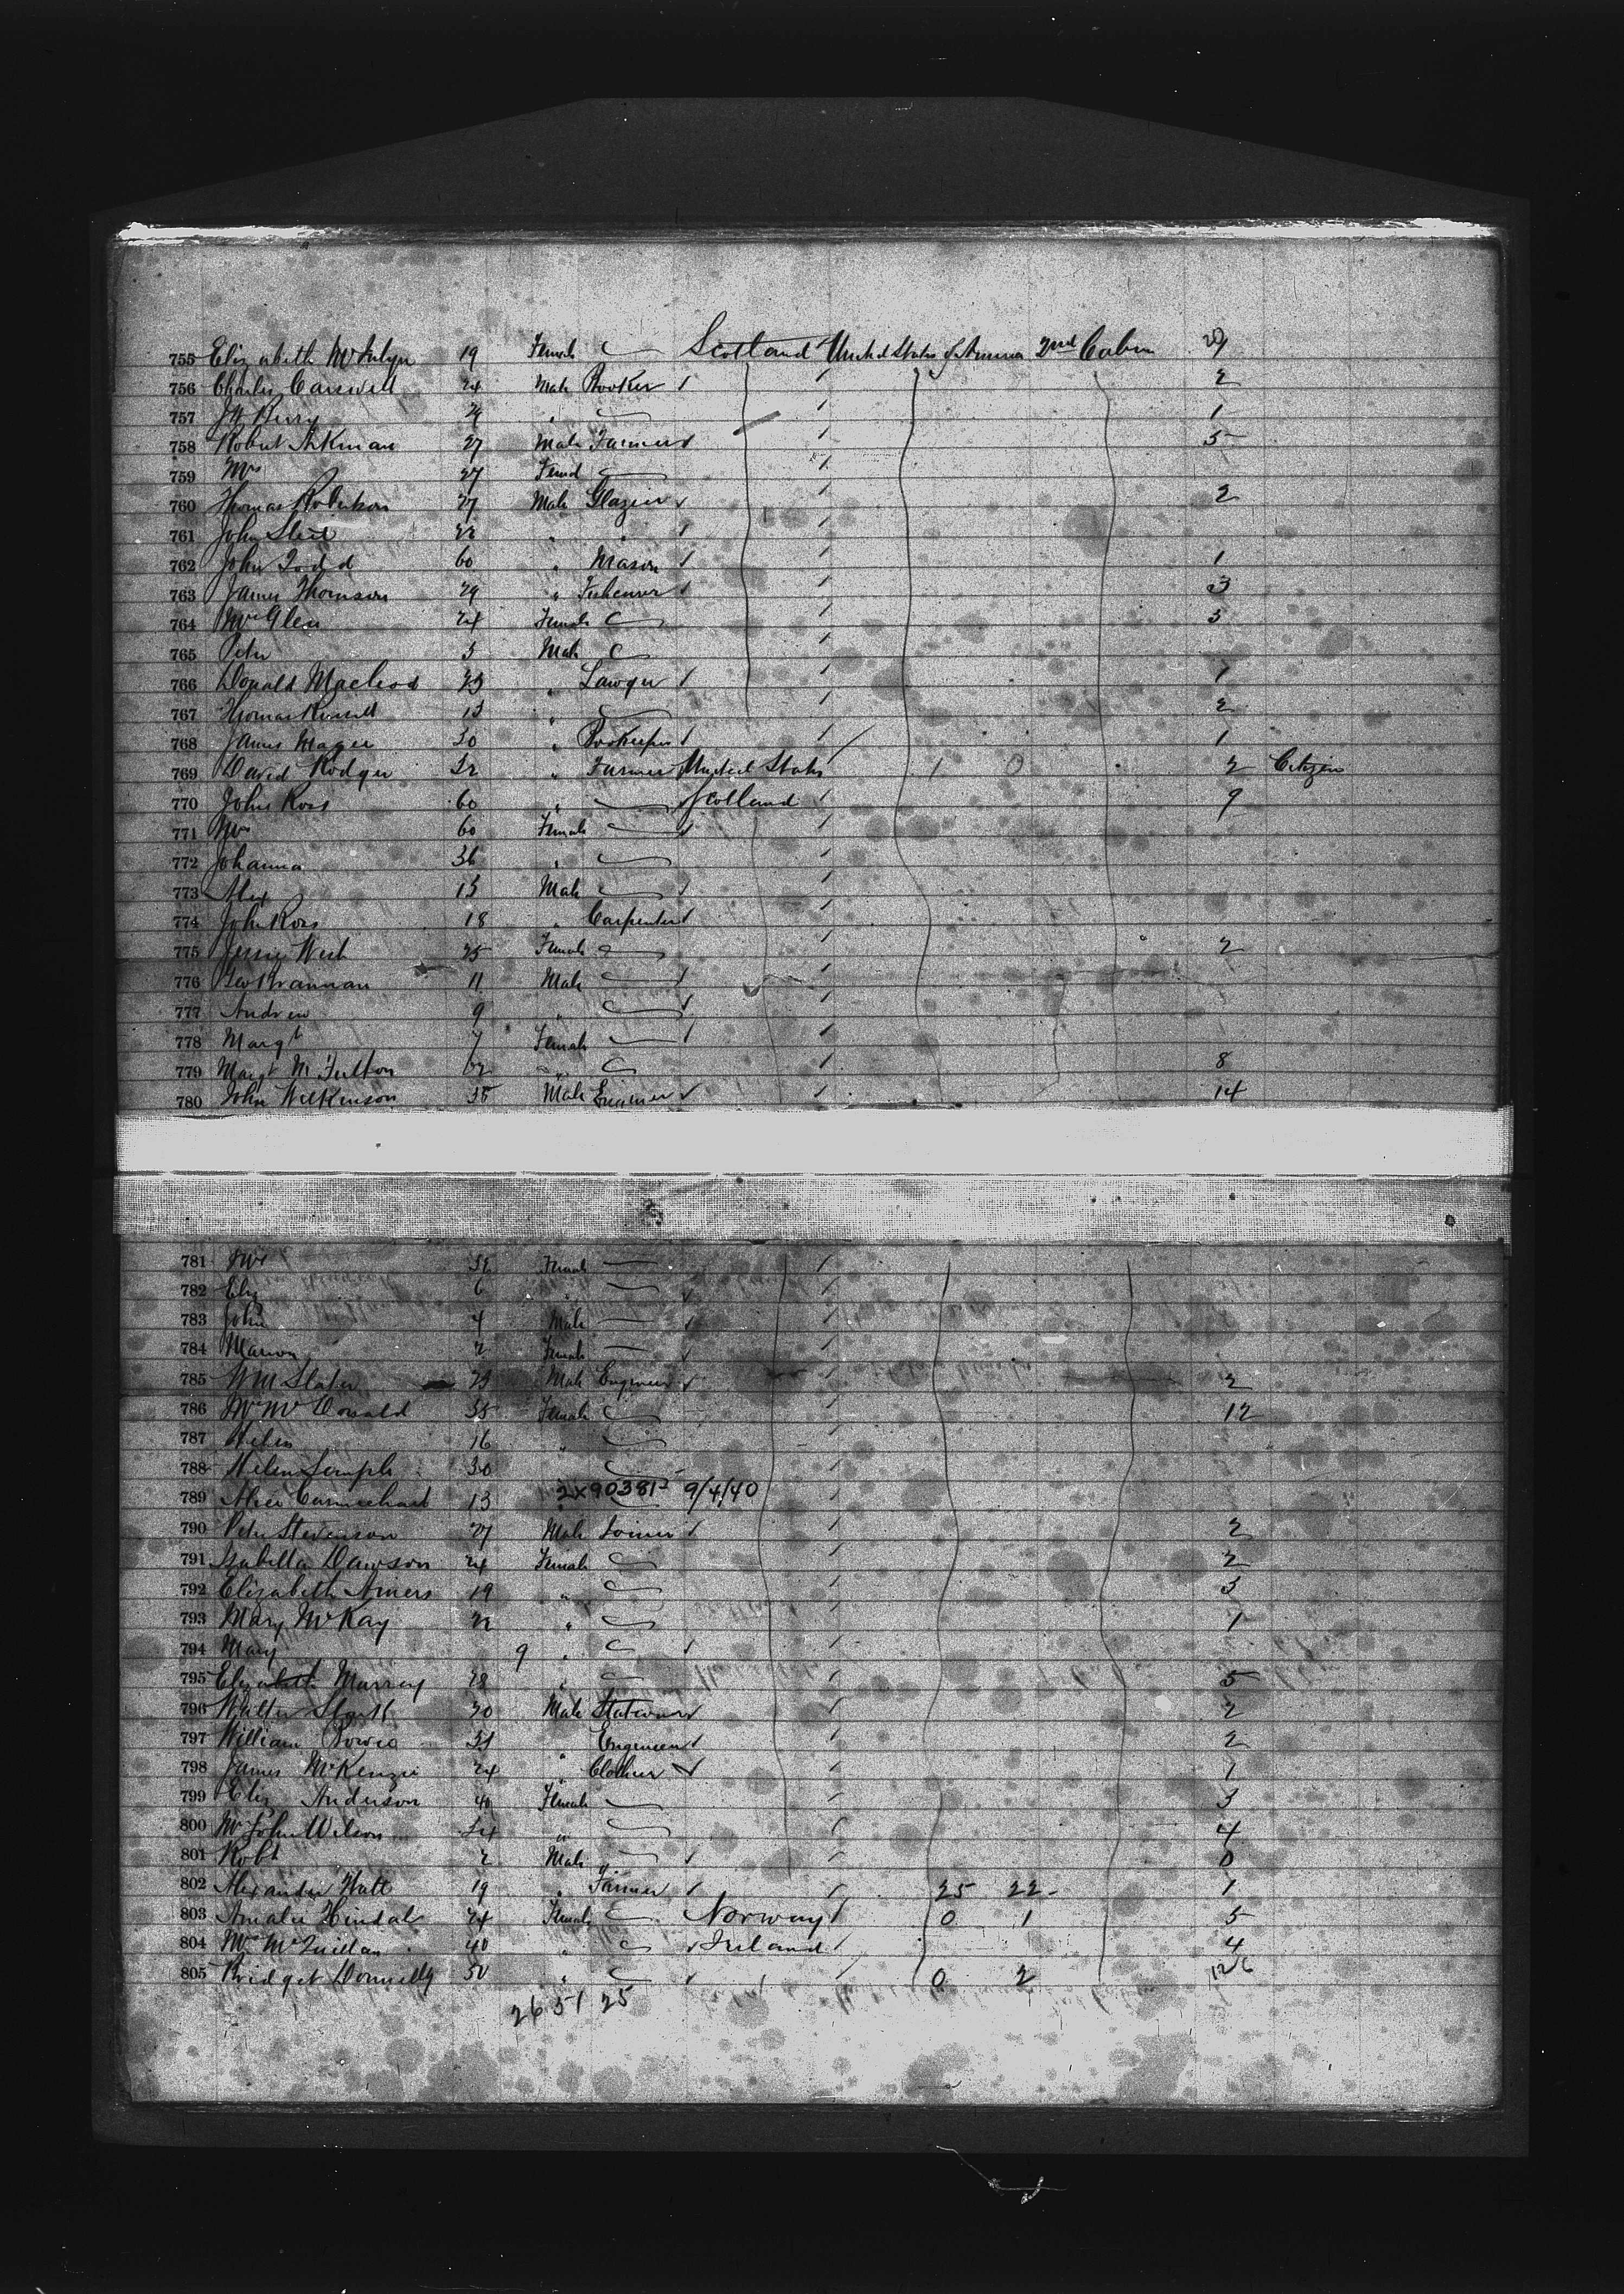 755 Elizabeth 19 Female Scotland United States of America 2nd Cabin
756 Charles Carswell 24 Male 2
757 Berry 29 " 1
758 Robert 27 Male Farmer 5
759 Mrs 27 Femal
760 Thomas Robertson 27 Male Glazier 2
761 John 22 " "
762 John Todd 60 " Mason 1
763 James Thomson 29 " 3
764 Mrs Glen 24 Female 3
765 Peter 3 Male
766 Donald Macleod 23 " Lawyer 1
767 Thomas Russell 13 " 2
768 James 30 " 1
769 David Rodger 52 " Farmer United States 1 0 2 Citizen
770 John Ross 60 " Scotland 9
771 Mrs 60 Female
772 Johanna 36 "
773 Alex 13 Male
774 John Ross 18 " Carpenter
775 Jessie 25 Female 2
776 11 Male
777 Andrew 9 "
778 Margt 7 Female
779 Margt " 8
780 John Wilkinson 35 Male Engineer 14
781 Mrs Female
782 Eliz 6 "
783 John 4 Male
784 Marion 2 Female
785 Wm Slater 23 Male Engineer 2
786 Mrs McDonald 35 Female 12
787 Helen 16 "
788 Helen Semple 30
789 Carmichael 13 2x903815 9/4/40
790 Peter Stevenson 27 Male Joiner 2
791 Isabella Dawson 24 Female 2
792 Elizabeth 19 " 3
793 Mary McKay 22 " 1
794 Mary 9 "
795 Elizabeth Murray 28 " 5
796 Walter 30 Male 2
797 William Bowie " Engineer 2
798 James McKenzie 24 " Clothier 1
799 Eliz Anderson 40 Female 3
800 Mrs John Wilson " 4
801 Robt 2 Male 0
802 Alexander Watt 19 " Farmer 25 22 1
803 Amalie 24 Female Norway 0 1 5
804 Mrs 40 " Ireland 4
805 Bridget Donnelly 50 " 0 2 126
26 51 25